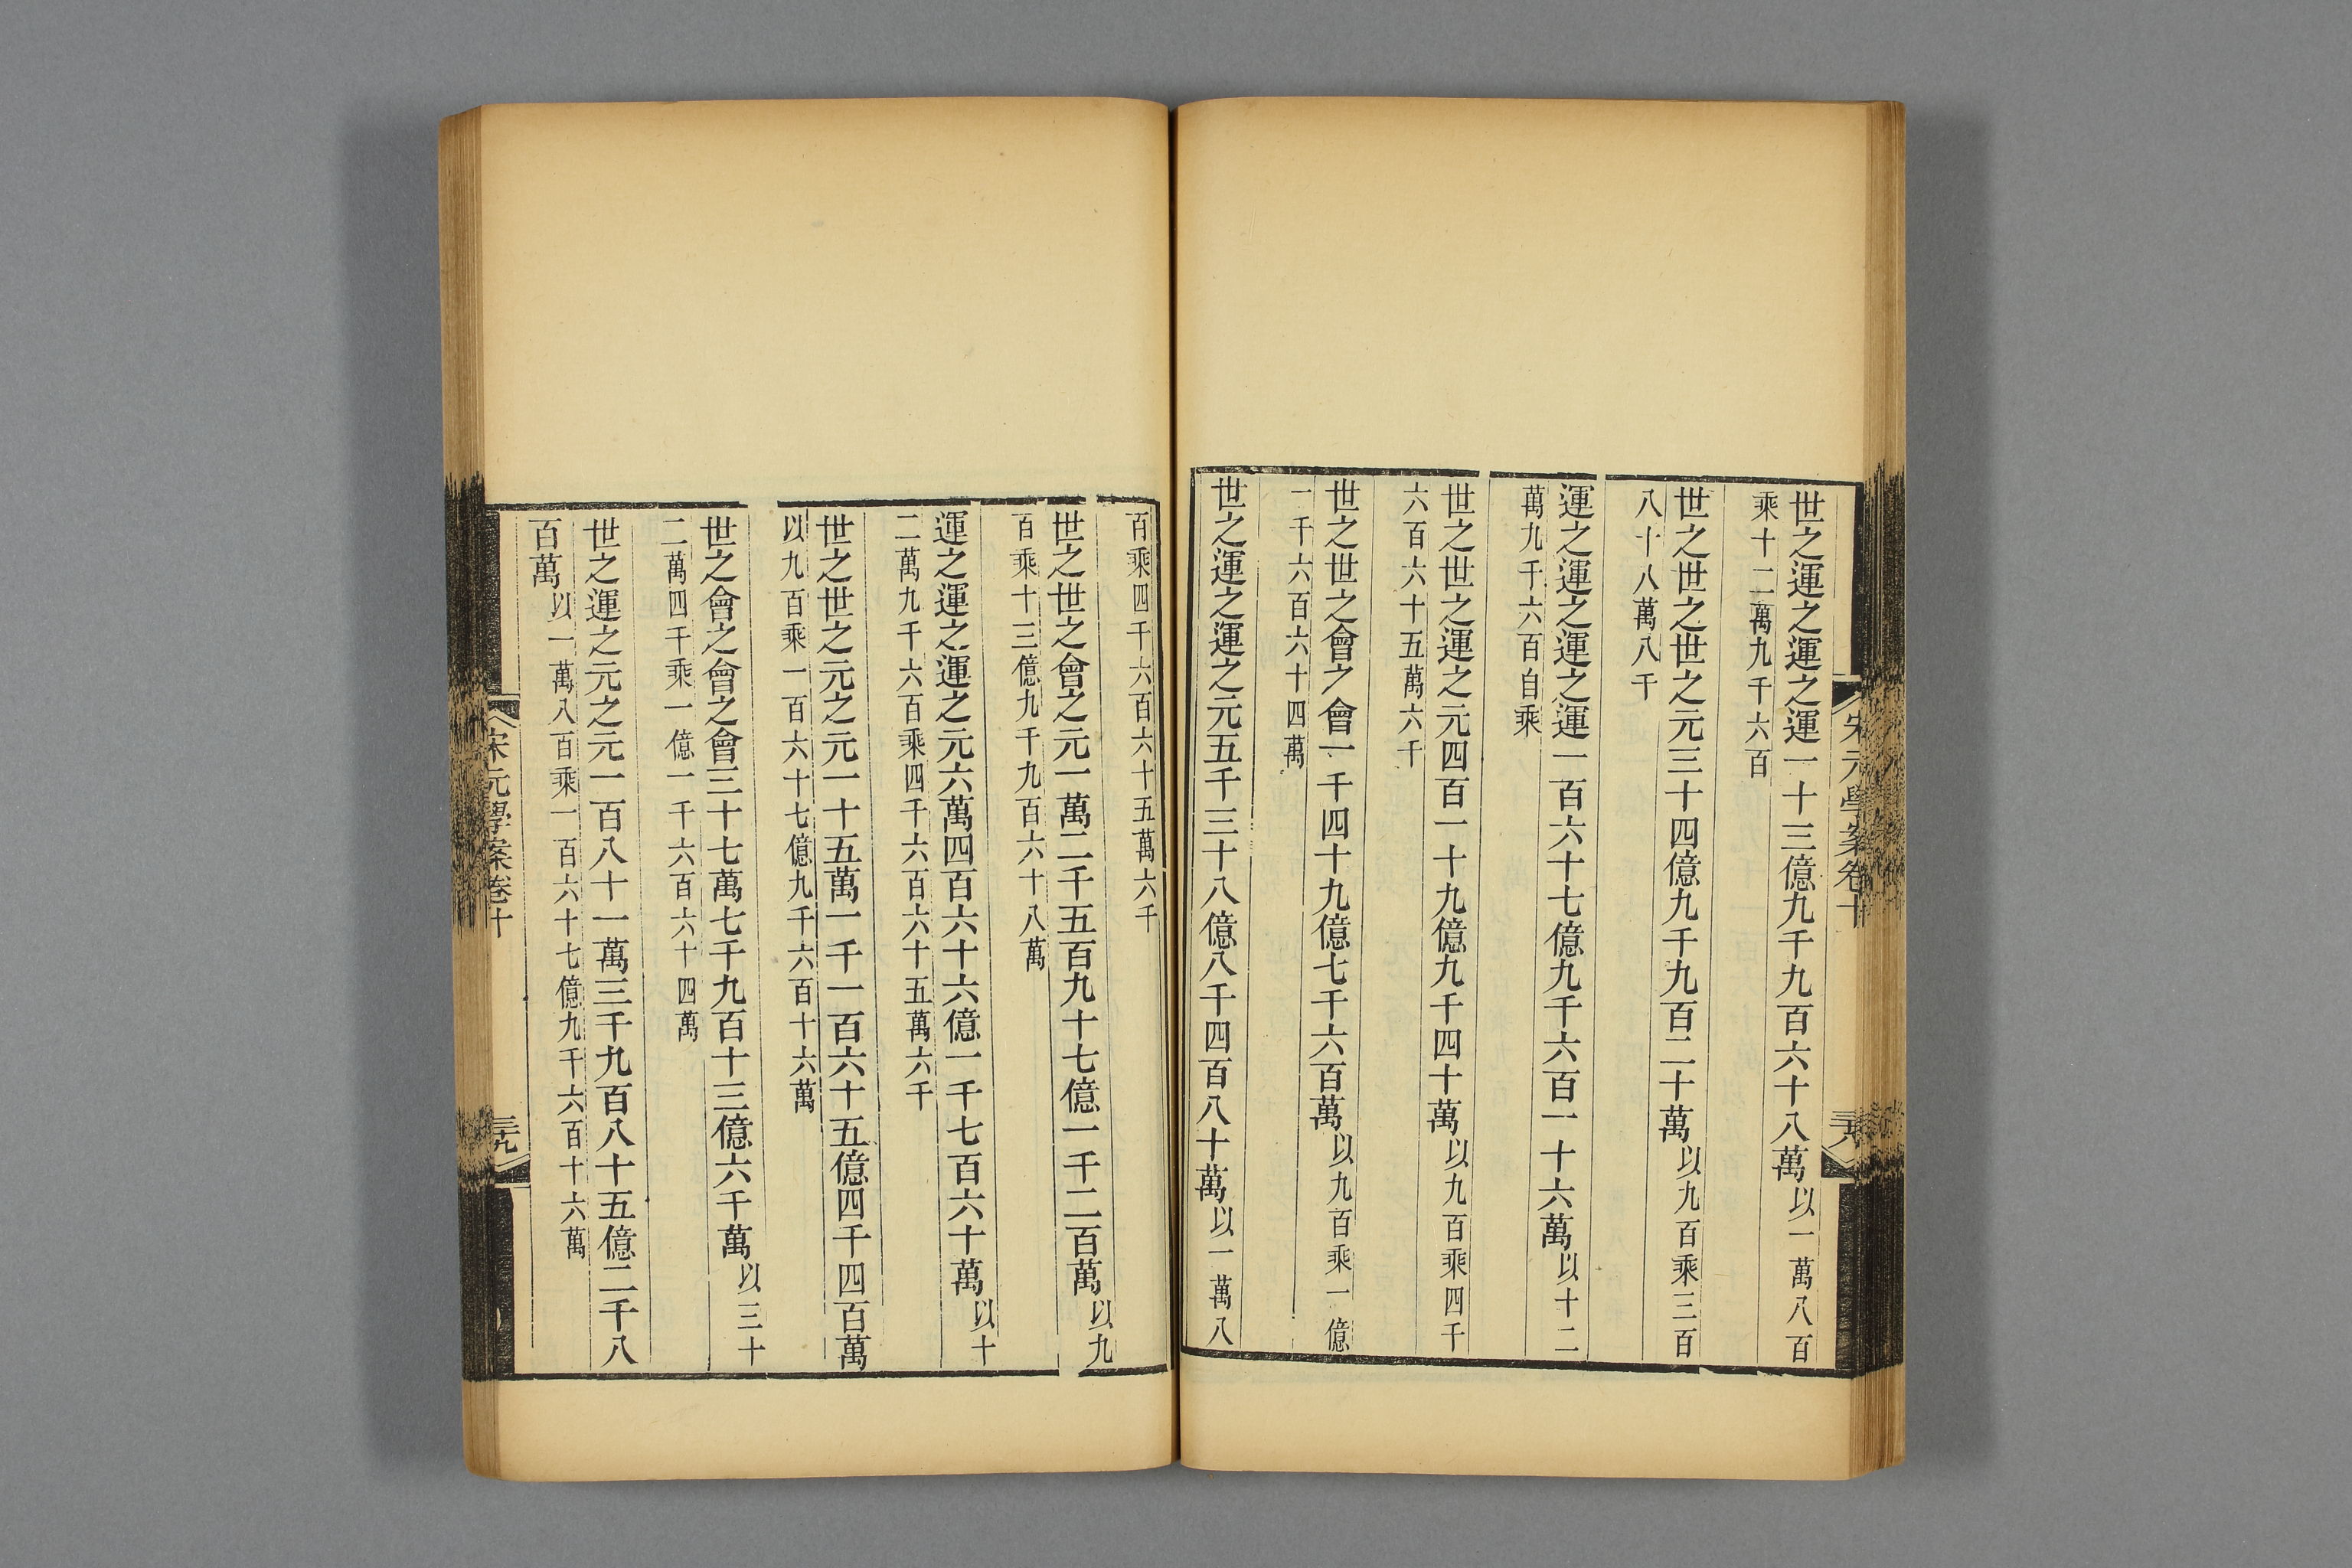 世之運之運之運一十三億九千九百六十八萬以一萬八百
乘十二萬九千六百
世之世之世之元三十四億九千九百二十萬以九百乘三百
八十八萬八千
運之運之運之運一百六十七億九千六百一十六萬以十二
萬九千六百自乘
世之世之運之元四百一十九億九千四十萬以九百乘四千
六百六十五萬六千
世之世之會之會一千四十九億七千六百萬以九百乘一億
一千六百六十四萬
世之運之運之元五千三十八億八千四百八十萬以一萬八
宋元學案卷十
三十八
百乘四千六百六十五萬六千
世之世之會之元一萬二千五百九十七億一千二百萬以九
百乘十三億九千九百六十八萬
運之運之運之元六萬四百六十六億一千七百六十萬以十
二萬九千六百乘四千六百六十五萬六千
世之世之元之元一十五萬一千一百六十五億四千四百萬
以九百乘一百六十七億九千六百十六萬
世之會之會之會三十七萬七千九百十三億六千萬以三十
二萬四千乘一億一千六百六十四萬
世之運之元之元一百八十一萬三千九百八十五億二千八
百萬以一萬八百乘一百六十七億九千六百十六萬
宋元學案卷十
三十九